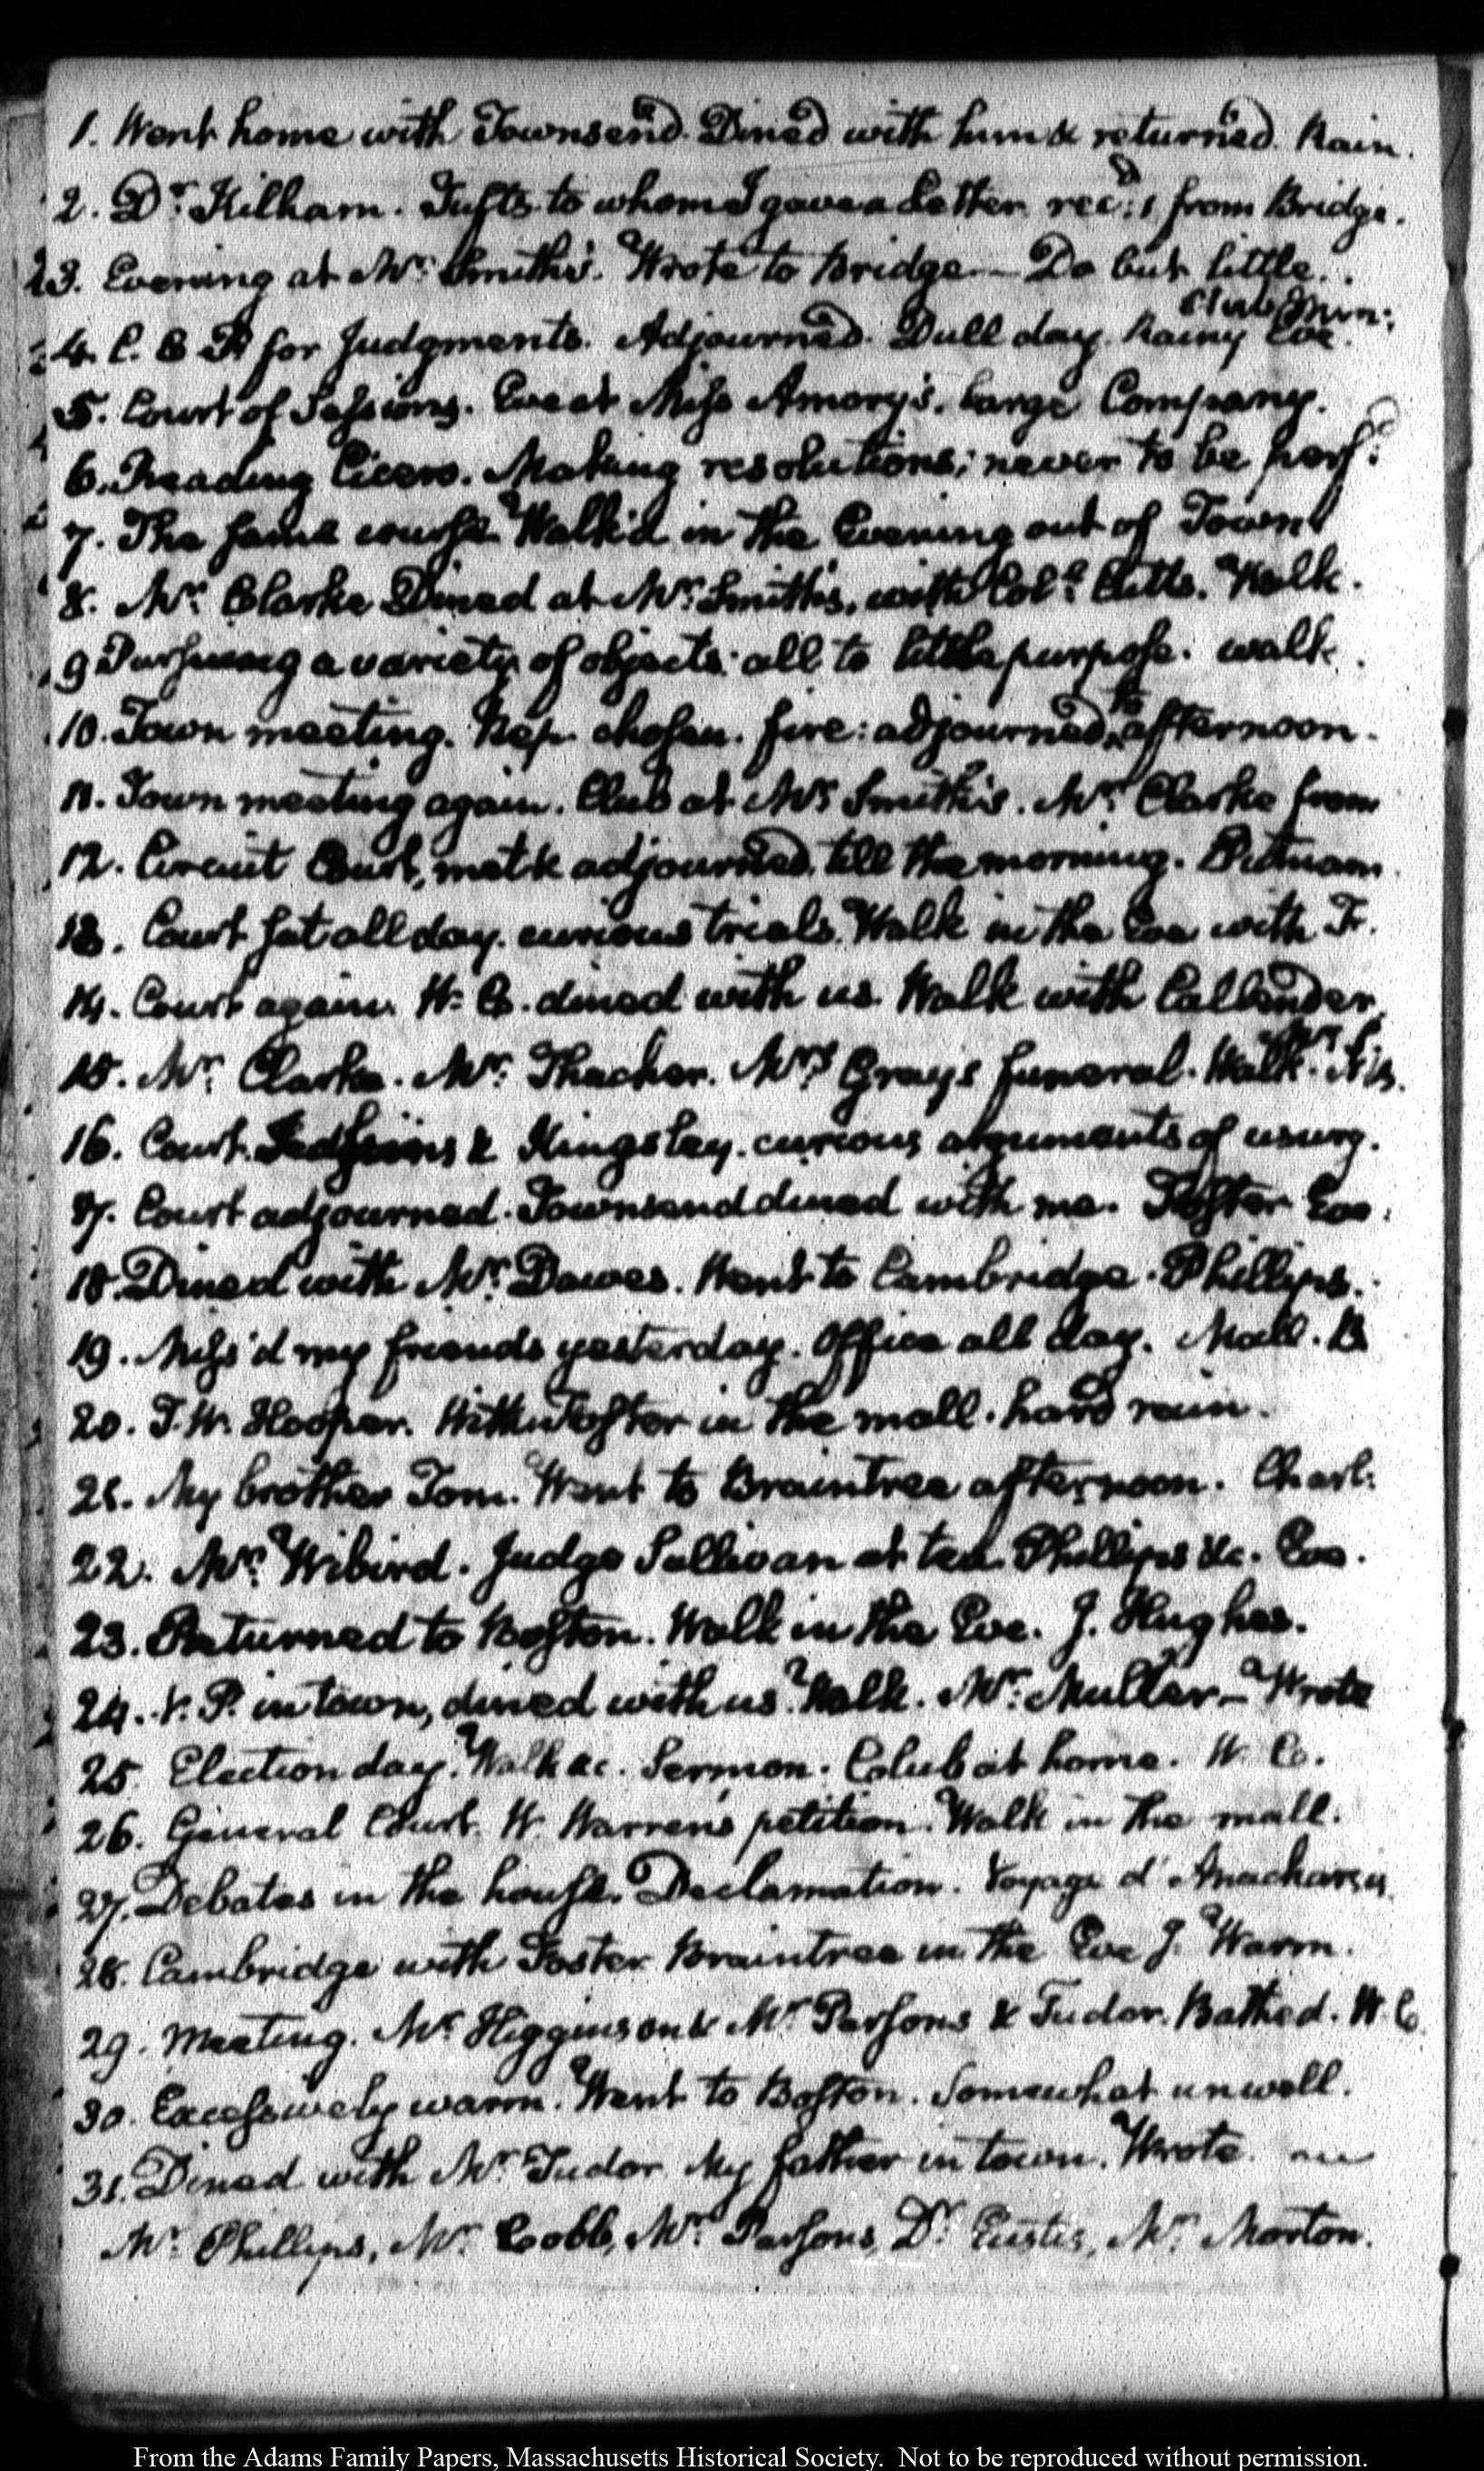 1. Went home with Townsend. Dined with him & returned. Rain.
2. Dr. Kilham. Tufts to whom I gave a Letter rec'd from Bridge.
3. Evening at Mr. Smith's. Wrote to Bridge — Do but little.
Club Min:
4. C. C P for Judgments. Adjourned. Dull day. Rainy Eve.
5. Court of Sessions. Eve at Miss Amory's. Large Company.
6. Reading Cicero. Making resolutions; never to be perf:d
7. The same course. Walk'd in the Evening out of Town
8. Mr. Clarke Dined at Mr. Smith's, with Col.o Cutts. Walk.
9 Pursuing a variety of objects: all to little purpose. walk.
10. Town meeting. Rep. chosen. fire: adjourned to afternoon.
11. Town meeting again. Club at Mr. Smith's. Mr. Clarke from
12. Circuit Court, met & adjourned, till the morning. Putnam.
13. Court sat all day. curious trials. Walk in the Eve with Fr.
14. Court again. W. C. dined with us. Walk with Callender.
15. Mr. Clarke. Mr. Thacher. Mrs. Grays funeral. Walk.
16. Court. & Kingsley. curious arguments of usury.
17. Court adjourned. Townsend dined with me. Foster Eve.
18. Dined with Mr. Dawes. Went to Cambridge. Phillips.
19. Miss'd my friends yesterday. Office all day. Mall. B
20. T. W. Hooper. With Foster in the mall. hard rain.
21. My brother Tom. Went to Braintree afternoon. Charl:
22. Mr. Wibird. Judge Sullivan at tea. Phillips &c. Eve.
23. Returned to Boston. Walk in the Eve. J. Hughes.
24. V. P. in town, dined with us. Walk. Mr. Muller — Wrote
25. Election day. Walk &c. Sermon. Club at home. W. C.
26. General Court. W. Warren's petition. Walk in the mall.
27. Debates in the house. Declamation. Voyage d'Anacharsis
28. Cambridge with Foster. Braintree in the Eve J. Warm.
29. Meeting. Mr. Higginson & Mr. Parsons & Tudor. Bathed. W. C.
30. Excessively warm. Went to Boston. Somewhat unwell.
31. Dined with Mr. Tudor. My father in town. Wrote.
Mr. Phillips, Mr. Cobb, Mr. Parsons, Dr. Eustis, Mr. Morton.
From the Adams Family Papers, Massachusetts Historical Society. Not to be reproduced without permission.